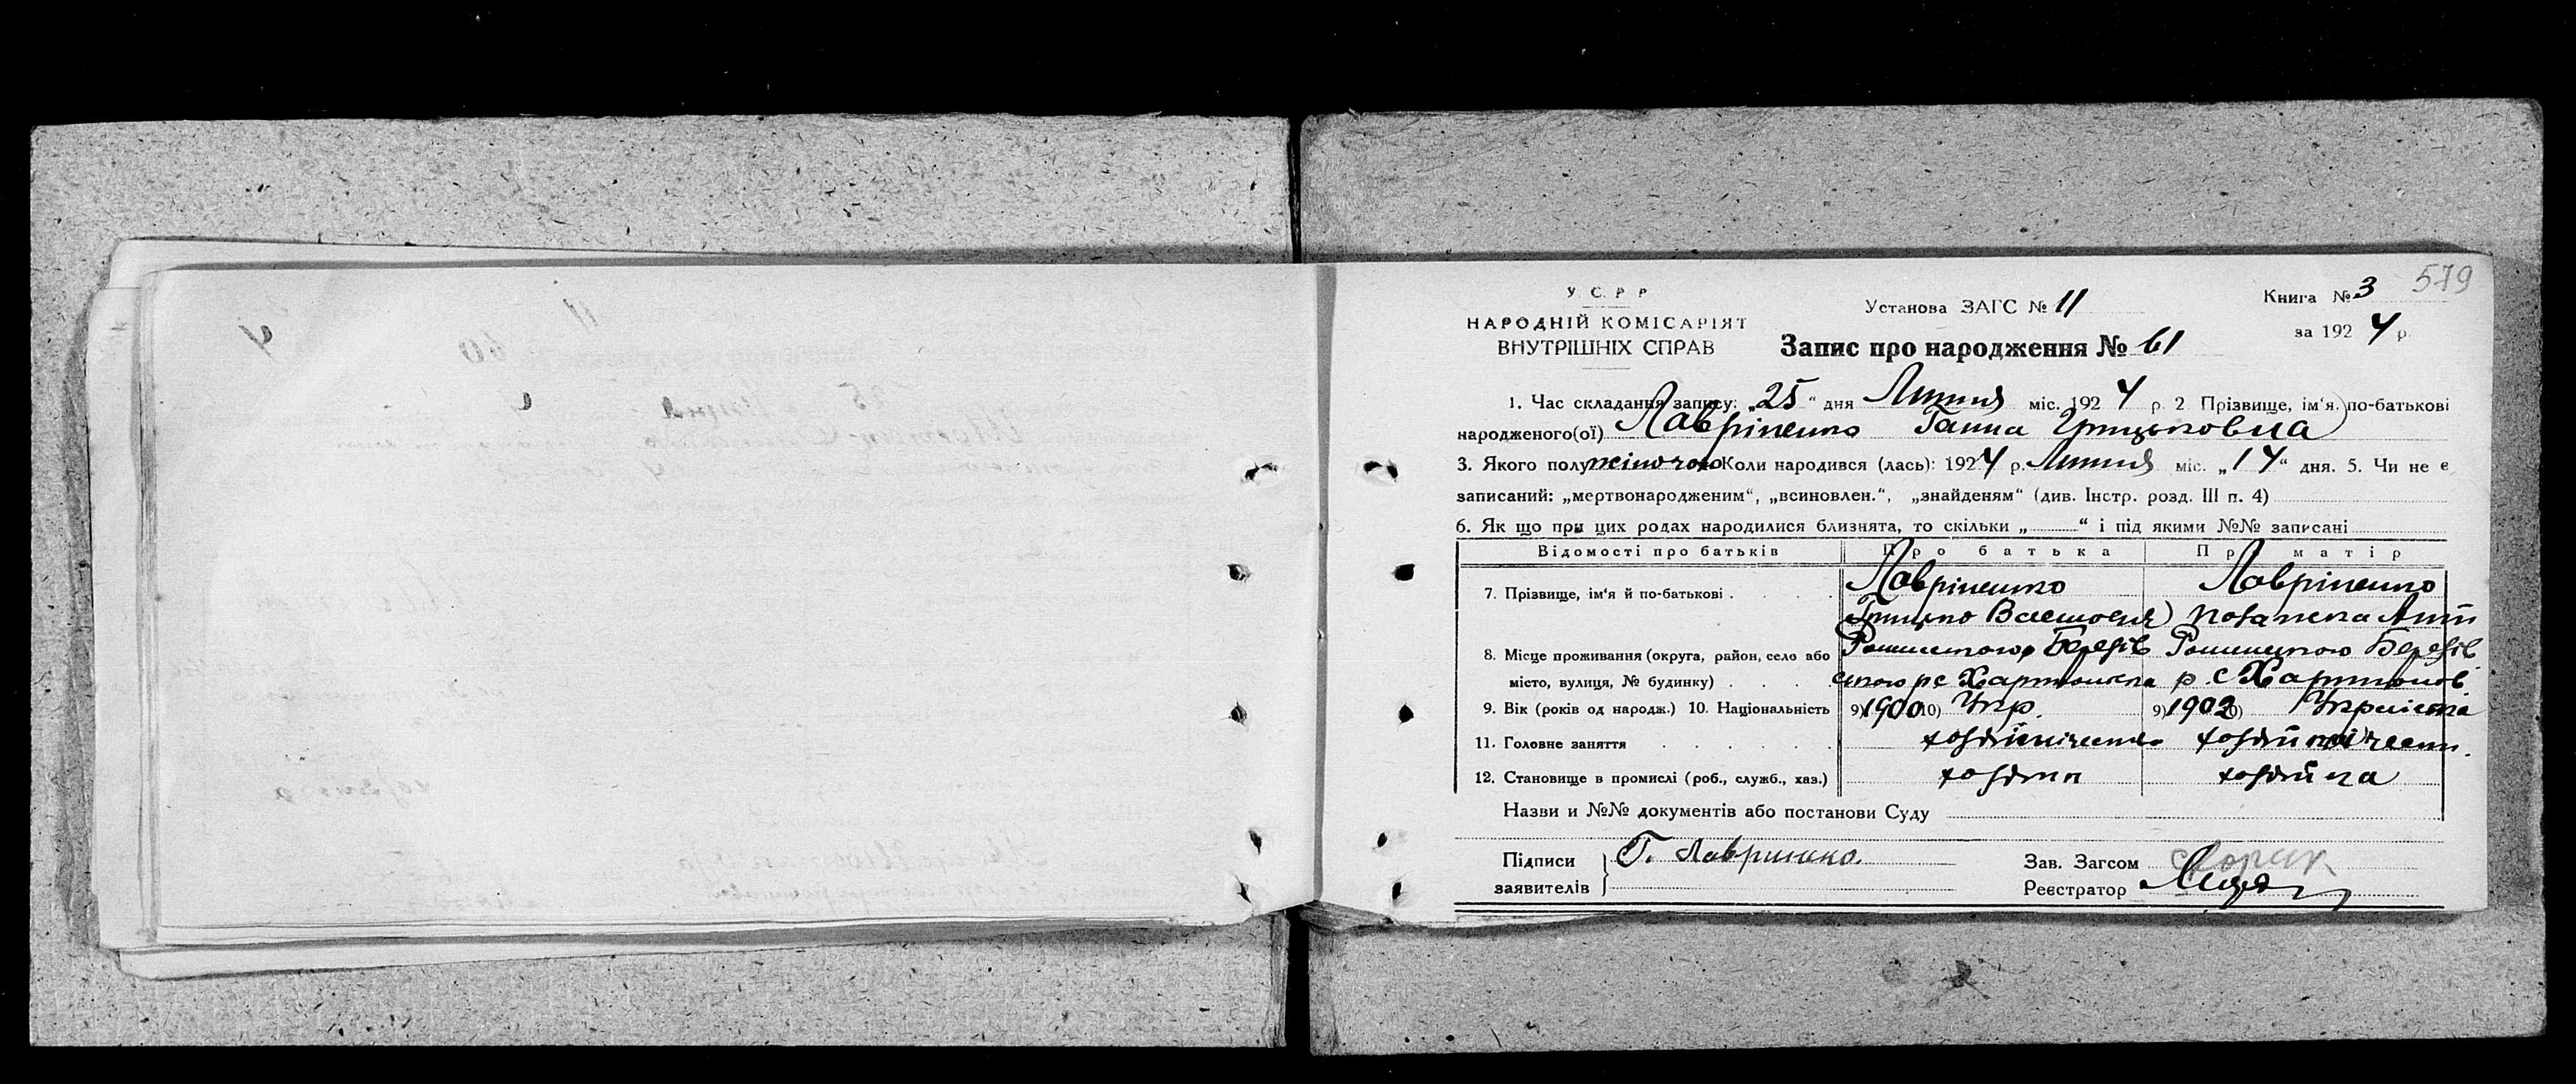 579
У. С. Р. Р.
НАРОДНІЙ КОМІСАРІЯТ
ВНУТРІШНІХ СПРАВ
Установа ЗАГС № 11
Книга № 3
за 1924 р.
Запис про народження № 61
1. Час складання запису: „25“ дня Липня міс. 1924 р. 2 Прізвище, ім‘я, по-батькові
народженого(ої) Лавріненко Ганна Грицьковна
3. Якого полу жіночого Коли народився (лась): 1924 р. Липня міс. „14“ дня. 5. Чи не є
записаний: „мертвонародженим“, „всиновлен.“, „знайденям“ (див. Інстр. розд. III п. 4)
6. Як що при цих родах народилися близнята, то скільки „ “ і під якими №№ записані
Відомості про батьків Про батька Пр матір
7. Прізвище, ім‘я й по-батькові Лавріненко Лавріненко
Грицько
8. Місце проживання (округа, район, село або Березів Роменцкого Березів
місто, вулиця, № будинку) ського р с р. с
9. Вік (років од народж.) 10. Національність 9) 1900 10) Укр. 9) 1902 10)
11. Головне заняття
12. Становище в промислі (роб., служб., хаз.) хозяїн хозяйка
Назви и №№ документів або постанови Суду
Підписи Г. Лавриненко
заявителів
Зав. Загсом
Реєстратор